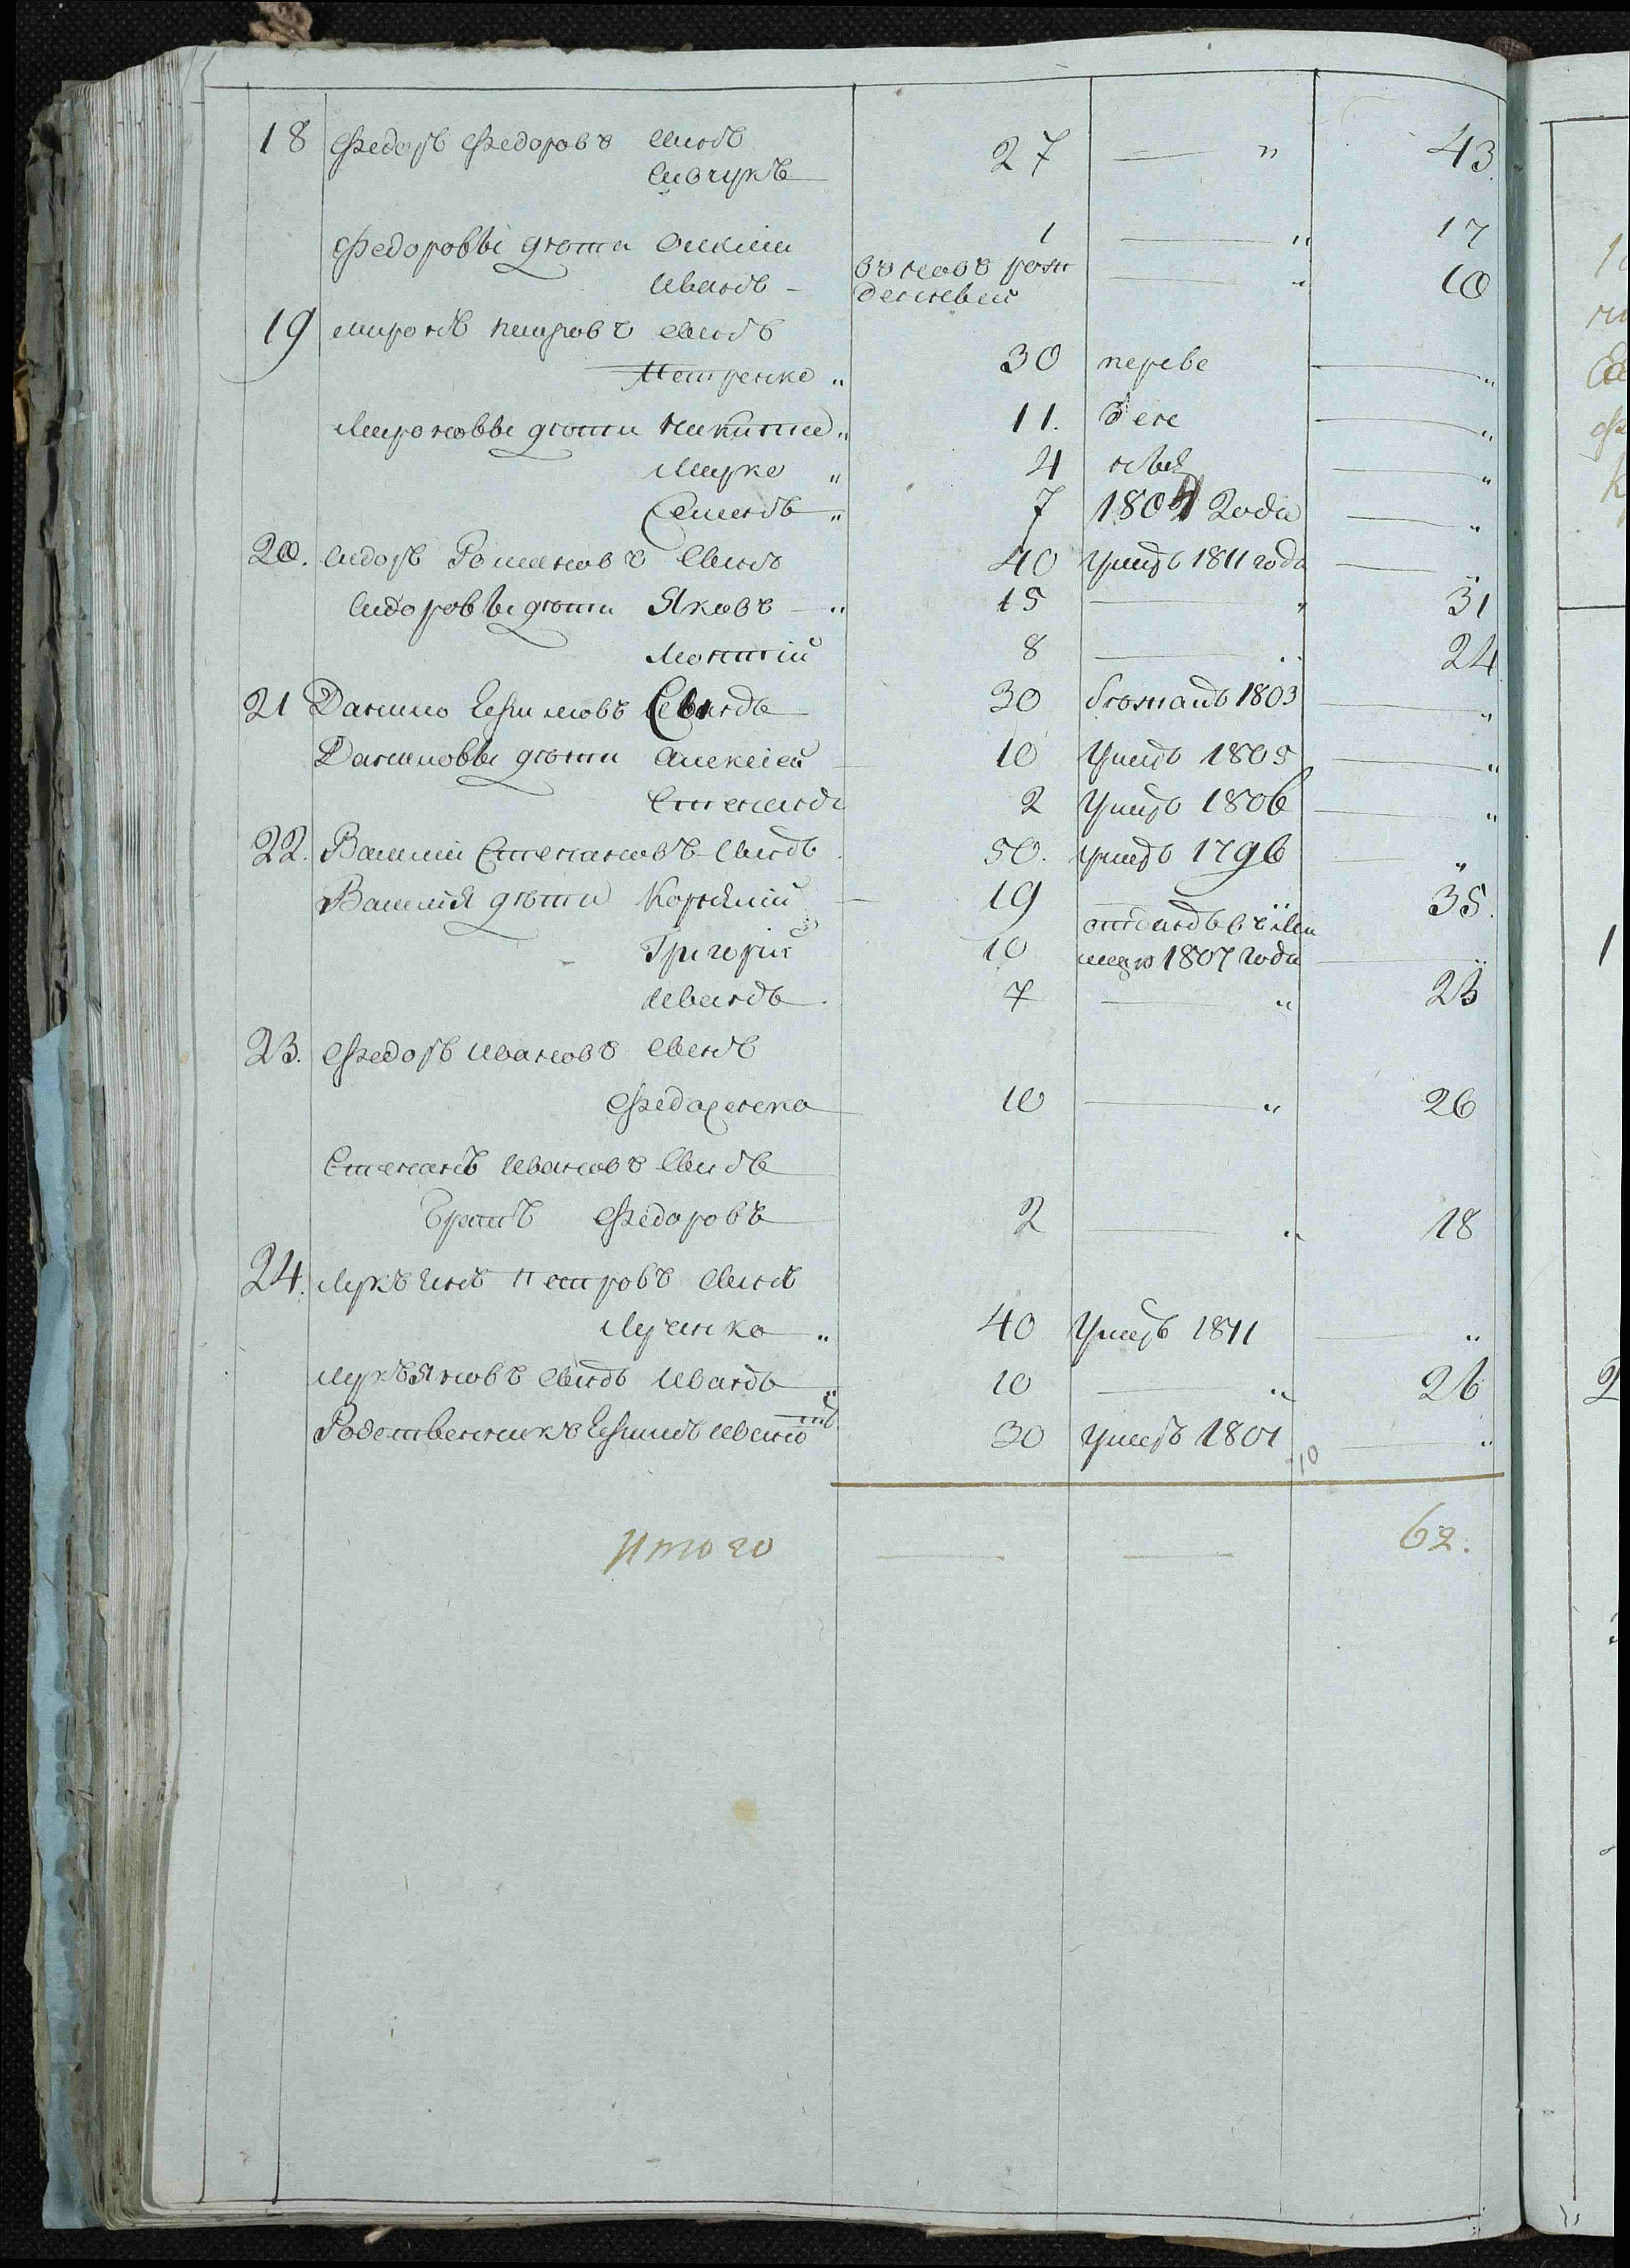 18 Федоръ Федоровъ сынъ 27 — " 43.
Савчукъ
Федоровы дѣти Алксѣй 1 — " 17
Иванъ — въ новъ рож — " 10
денный
19 Миронъ петровъ сынъ
Петренко " 30 переве — "
Мироновы дѣти Никита " 11. дене — "
Марко " 4 ныя — "
Семенъ " 7 1804 Года — "
20. Сидоръ Романовъ сынъ 40 Умеръ 1811 года — "
Сидоровы дѣти Яковъ — " 15 — " 31
Мокѣй 8 — " 24
21 Данило сынъ 30 бѣжалъ 1803 — "
Даниловы дѣти Алексѣй — 10 Умеръ 1805 — "
Степанъ 2 Умеръ 1806 — "
22. Василий Степановъ сынъ 50. умеръ 1796 — "
Василія дѣти Корнѣлій — 19 35.
Григорій 10 отданъ въ
1807 года — "
Иванъ. 7 — " 23
23. Федоръ Ивановъ сынъ
Федоренко 10 — " 26
Степанъ Ивановъ сынъ
братъ Федоровъ 2 — " 18
24. Лукъянъ Петровъ сынъ
Луценко " 40 Умеръ 1811 — "
Лукъяновъ сынъ Иванъ " 10 — " 26
Родственникъ 30 умеръ 1801 — "
10
Итого — — 62.